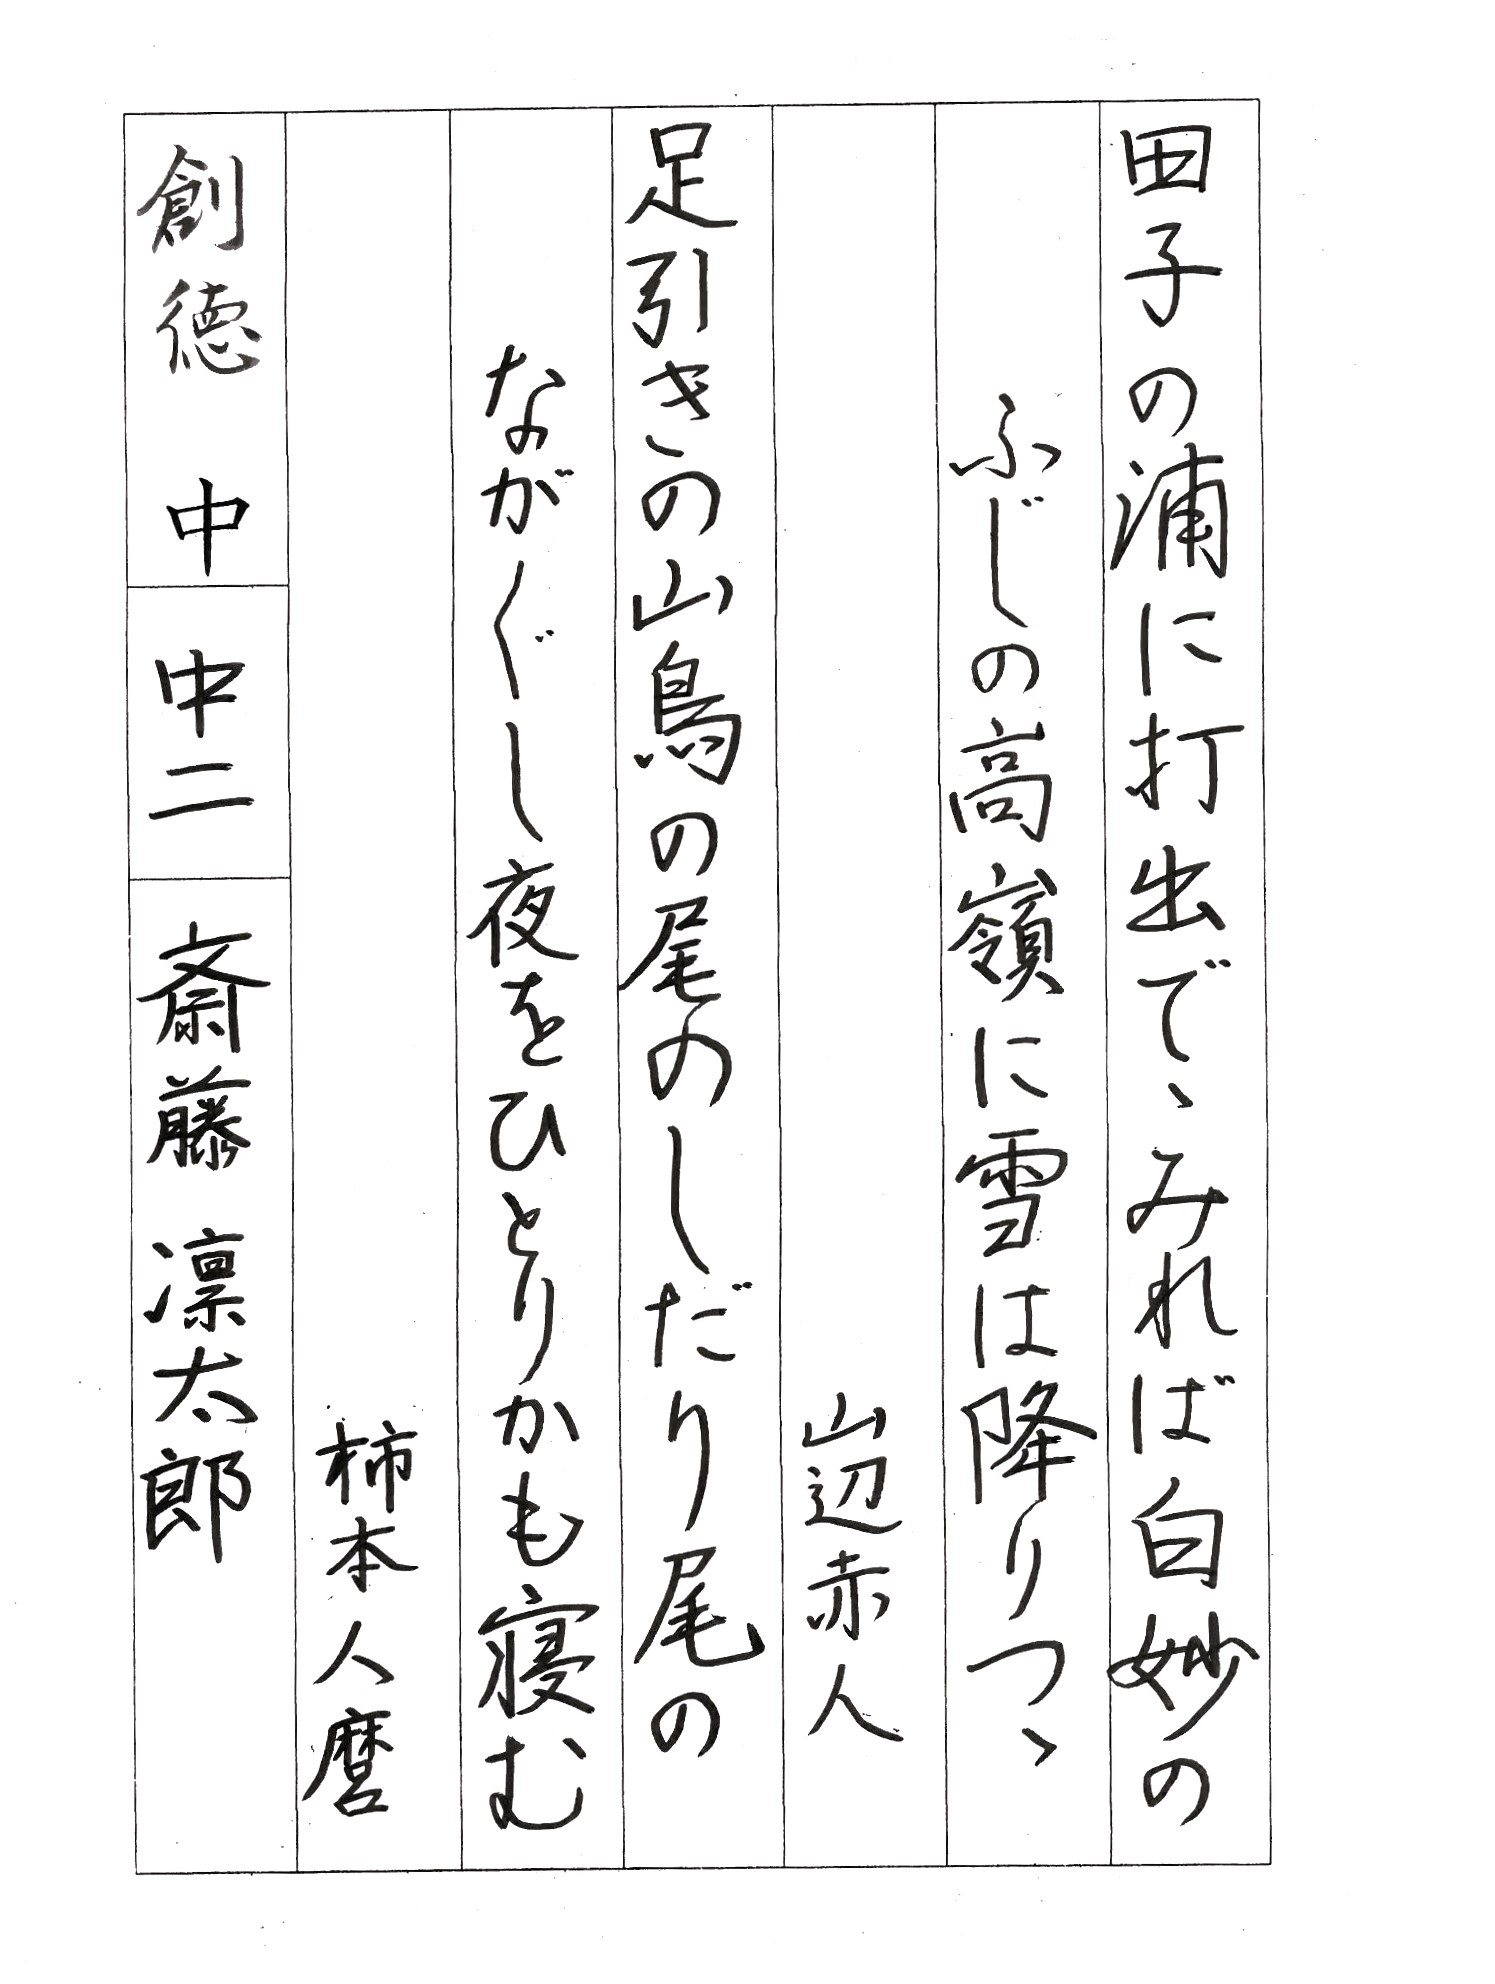 田子の浦に打出でゝみれば白妙の
ふじの高嶺に雪は降りつゝ
山辺赤人
足引きの山鳥の尾のしだり尾の
ながぐし夜をひとりかも寝む
柿本人麿
創徳中
中二
斎藤凛太郎